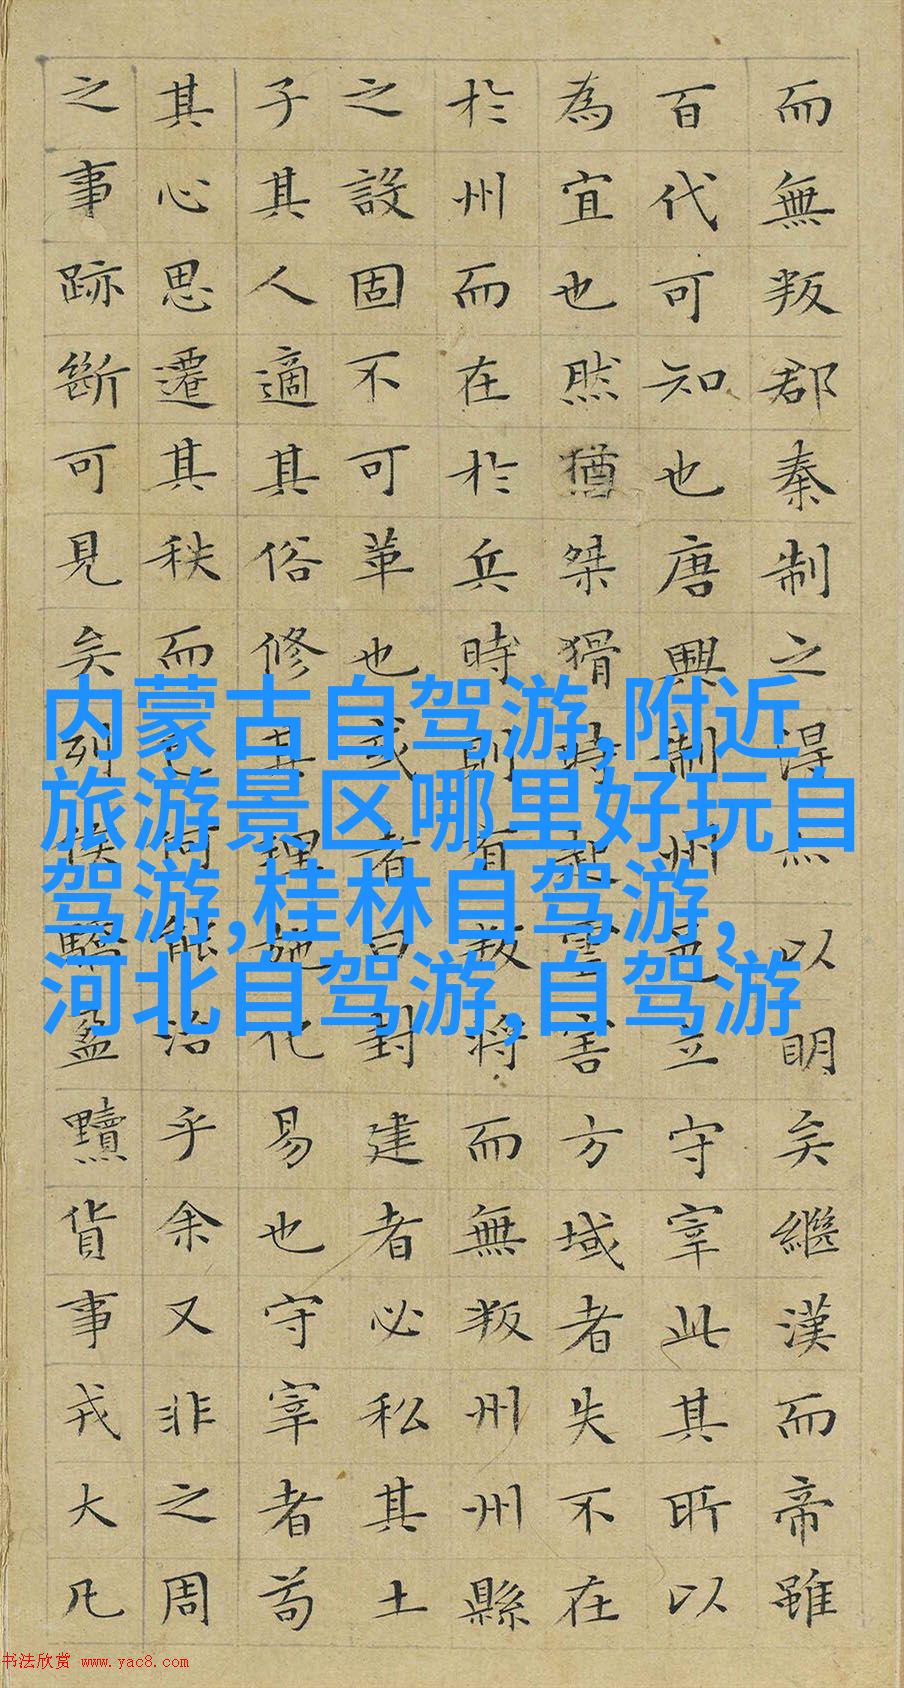 而無叛郡秦制之得亦以明矣繼漢而帝雖
百代可知也唐興制州邑立守宰此其所以
為宜也然猶桀猾時起虐害方域者失不在
於州而在於兵時則有叛將而無叛州州縣
之設固不可革也或者曰封建者必私其土
子其人適其俗修其理施化易也守宰者苟
其心思遷其秩而已何能治乎余又非之周
之事跡斷可見矣列侯驕盈黷貨事戎大凡
内蒙古自驾游,附近
旅游景区哪里好玩自
驾游,桂林自驾游,
河北自驾游,自驾游
书法欣赏 www.yac8.com